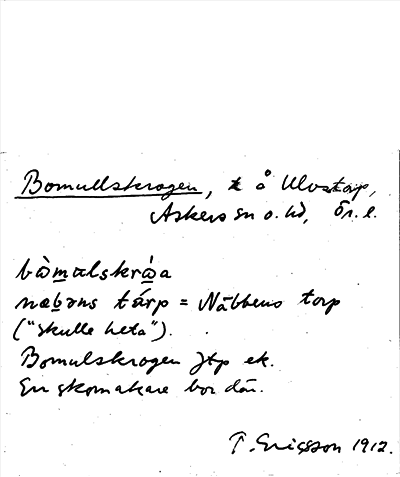 Bomullskrogen, t å Ulvstorp,
Askers sn o. hd, Ör. l.
bòmulskròa
næbəns tårp = Näbbens torp
("skulle heta").
Bomulskrogen Jtp ek.
En skomakare bor där.
T. Ericsson 1912.